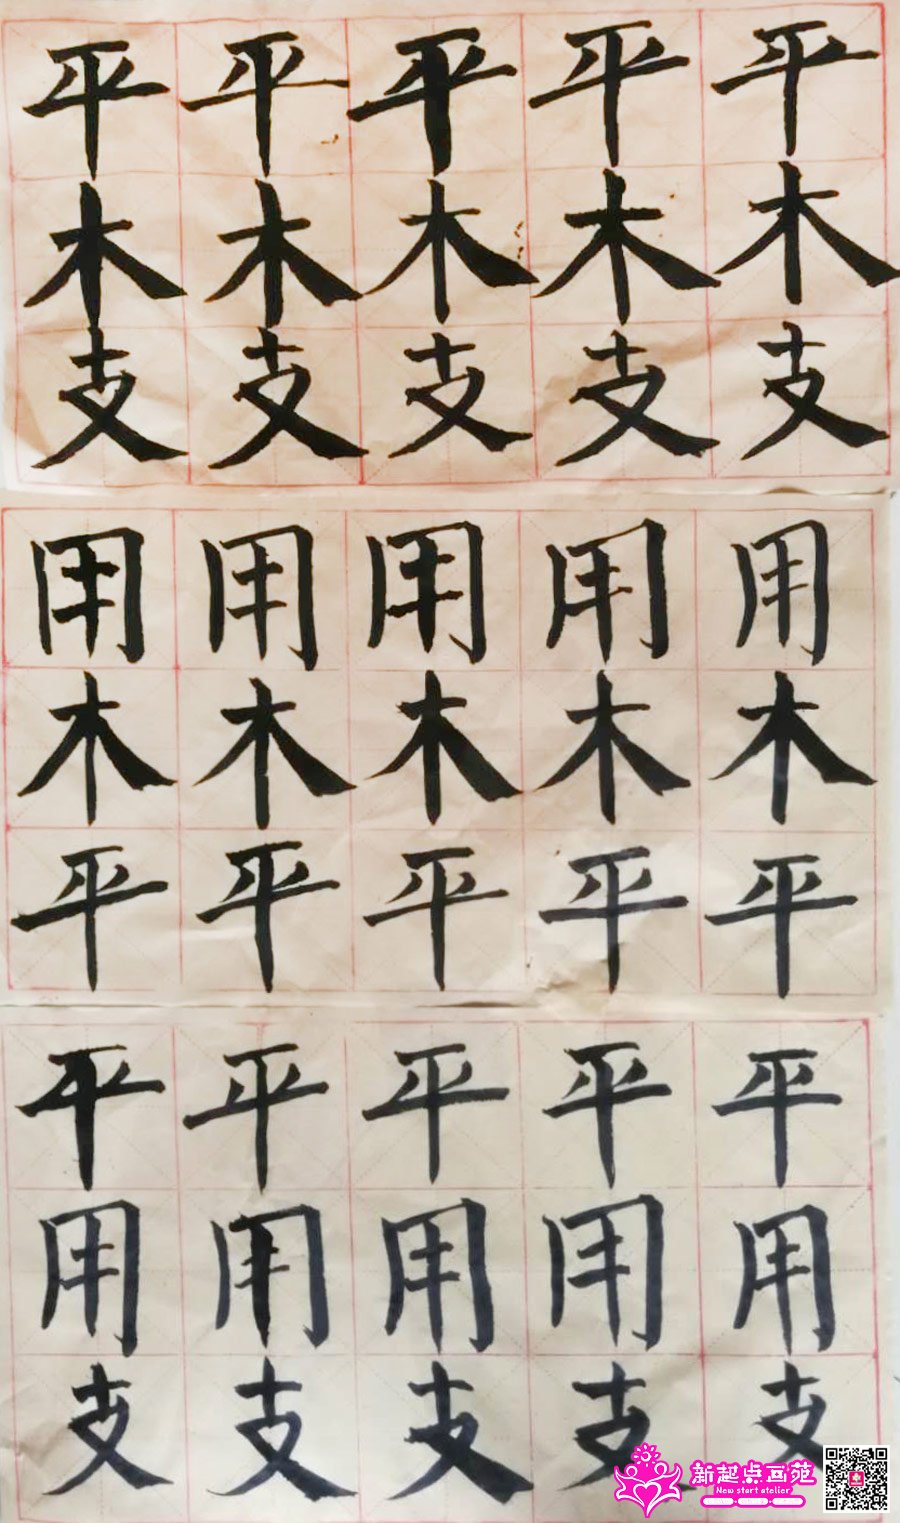 平平平平平
木木木木木
支支支支支
用用用用用
木木木木木
平平平平平
平平平平平
用用用用用
支支支支支
新起点画苑
New start atelier